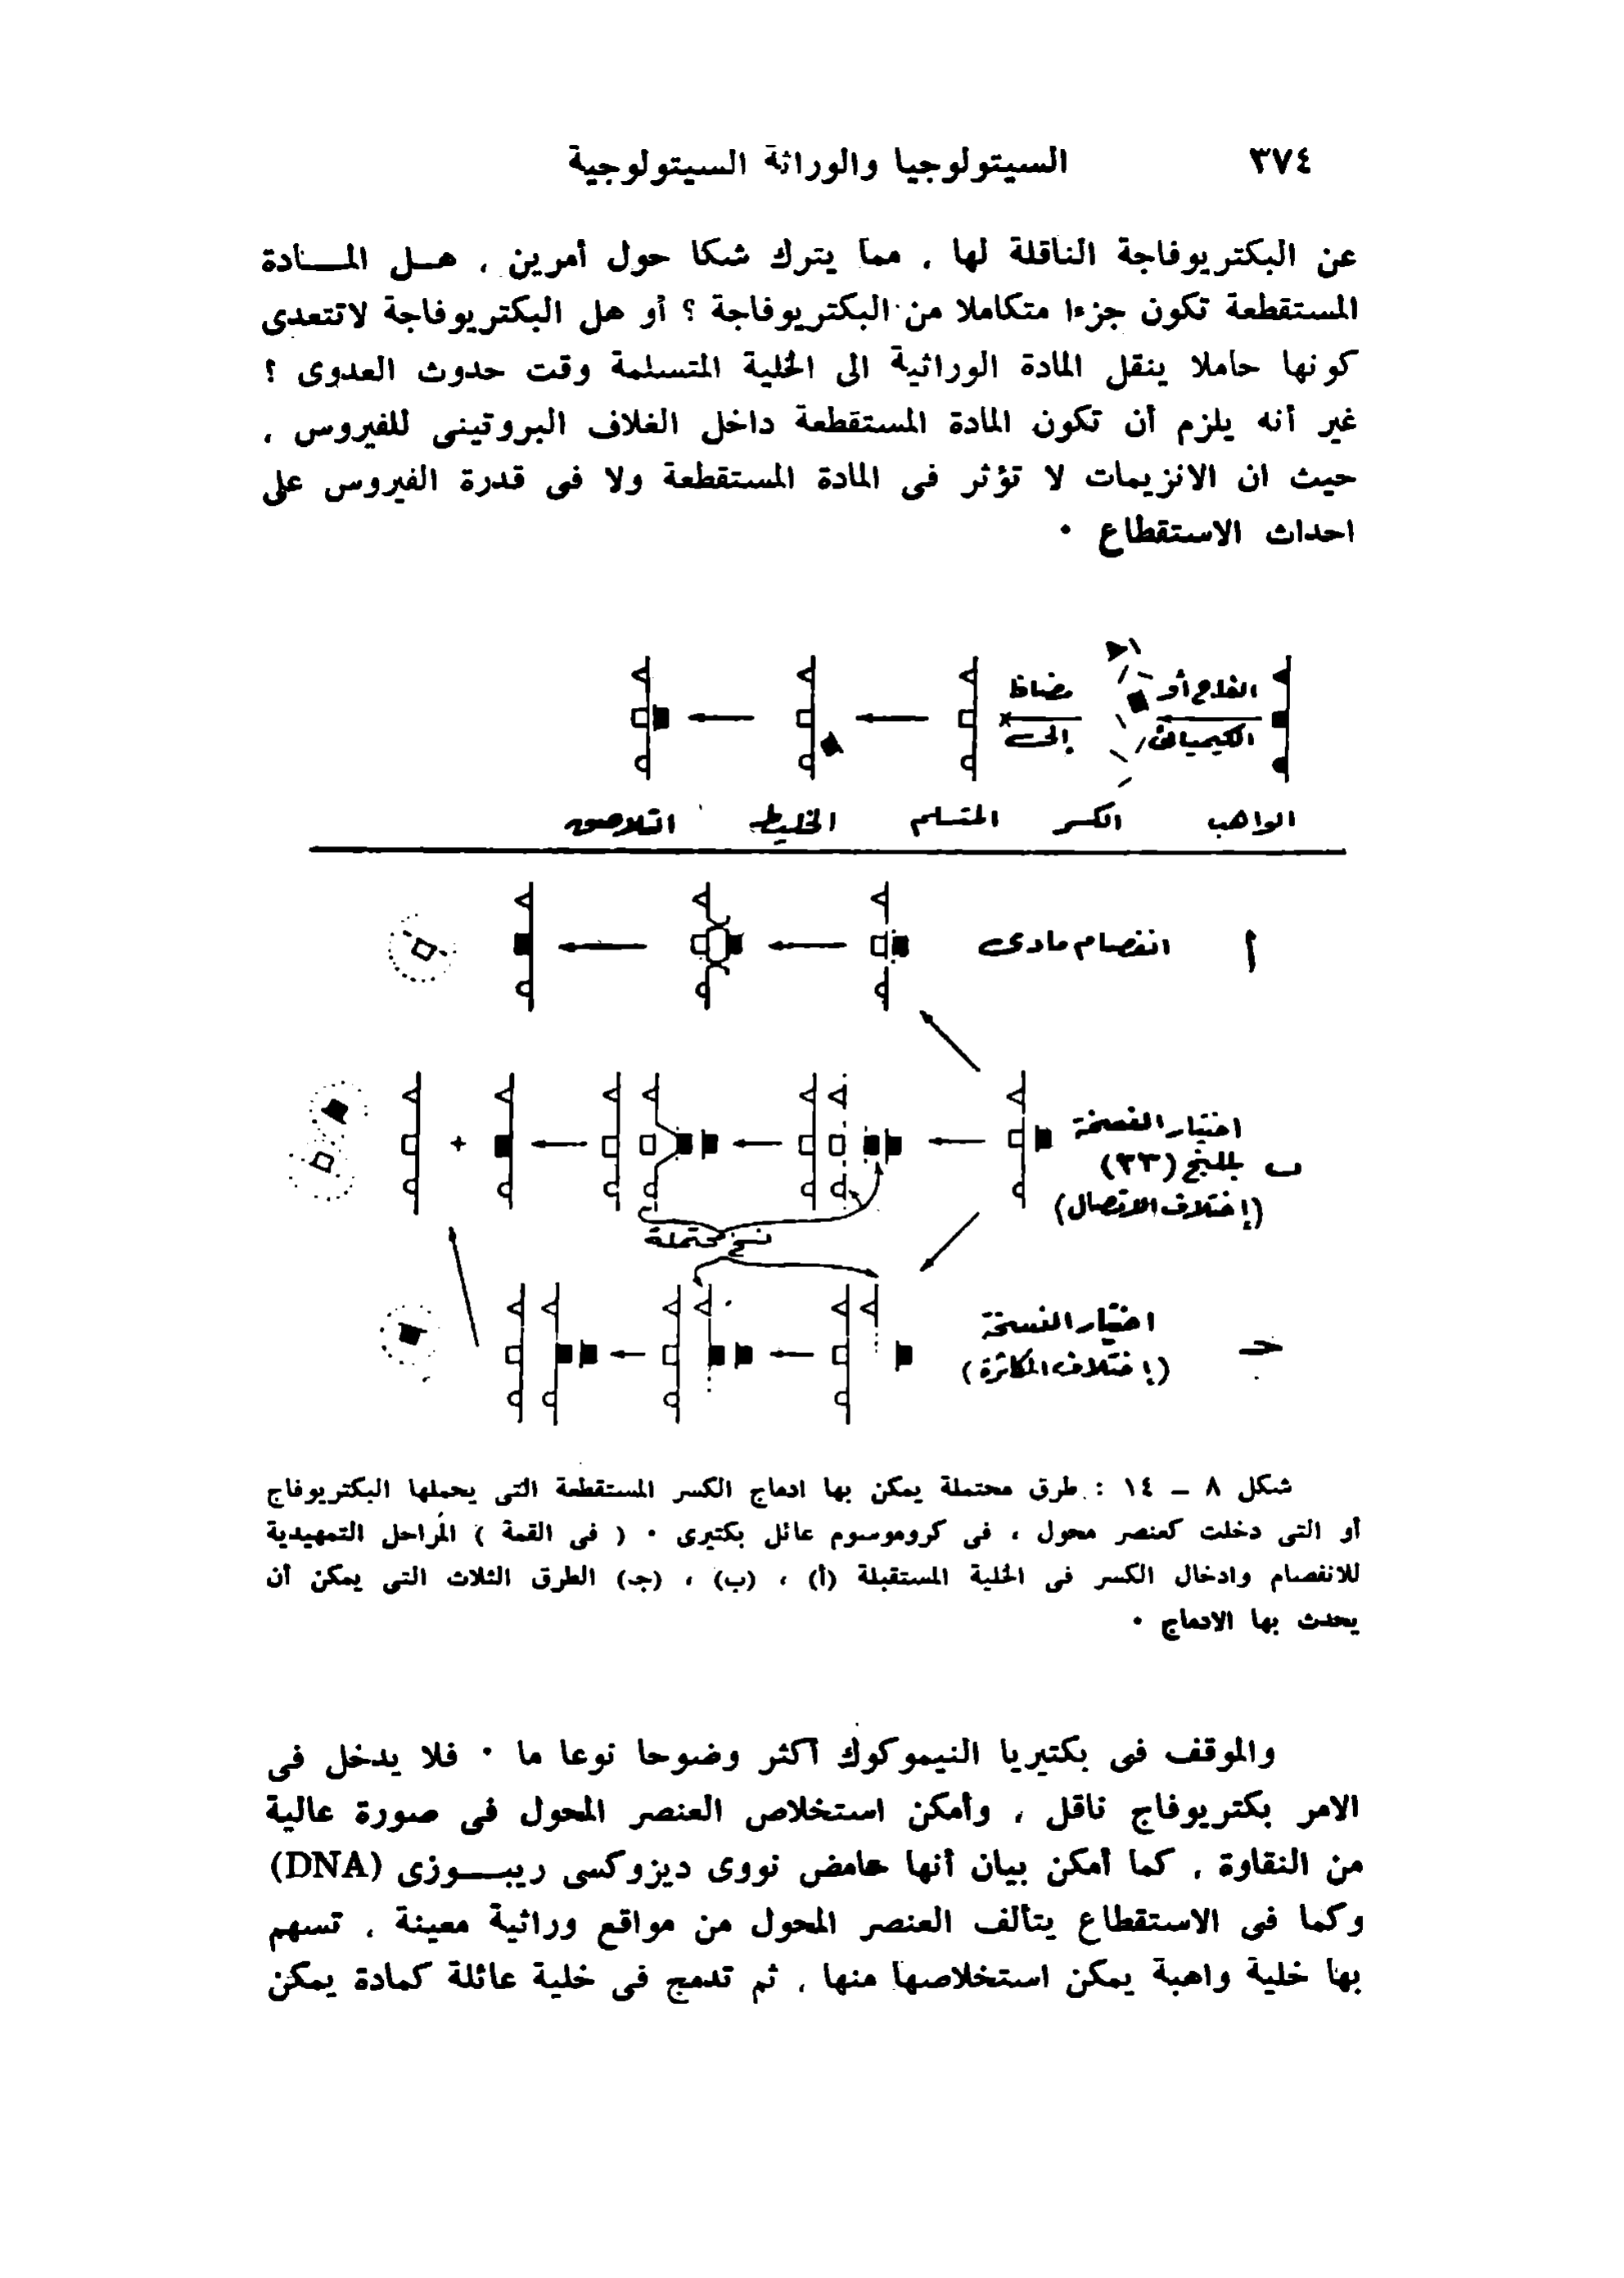 ٣٧٤ السيتولوجيا والوراثة السيتولوجية
عن البكتريوفاجة الناقلة لها ، مما يترك شكا حول أمرين ، هـل المـــادة
المستقطعة تكون جزءا متكاملا من البكتريوفاجة ؟ أو هل البكتريوفاجة لاتتعدى
كونها حاملا ينقل المادة الوراثية الى الخلية المتسلمة وقت حدوث العدوى ؟
غير أنه يلزم أن تكون المادة المستقطعة داخل الغلاف البروتينى للفيروس ،
حيث ان الانزيمات لا تؤثر فى المادة المستقطعة ولا فى قدرة الفيروس على
احداث الاستقطاع ٠
أو مضاف
الكيميائى إلى
الواهب الكسر المتسلم الخليط التلاصق
أ انفصام مادى
اختيار النسخة
ب (٣٣)
(إختلاف الاتصال)
نسخ محتملة
اختيار النسخة
جـ (إختلاف المكاثرة)
شكل ٨ – ١٤ : طرق محتملة يمكن بها ادماج الكسر المستقطعة التى يحملها البكتريوفاج
أو التى دخلت كعنصر محول ، فى كروموسوم عائل بكتيرى ٠ ( فى القمة ) المراحل التمهيدية
للانفصام وادخال الكسر فى الخلية المستقبلة (أ) ، (ب) ، (جـ) الطرق الثلاث التى يمكن أن
يحدث بها الادماج ٠
والموقف فى بكتيريا النيموكوك أكثر وضوحا نوعا ما ٠ فلا يدخل فى
الامر بكتريوفاج ناقل ، وأمكن استخلاص العنصر المحول فى صورة عالية
من النقاوة ، كما أمكن بيان أنها حامض نووى ديزوكسى ريبـــوزى (DNA)
وكما فى الاستقطاع يتألف العنصر المحول من مواقع وراثية معينة ، تسهم
بها خلية واهبة يمكن استخلاصها منها ، ثم تدمج فى خلية عائلة كمادة يمكن